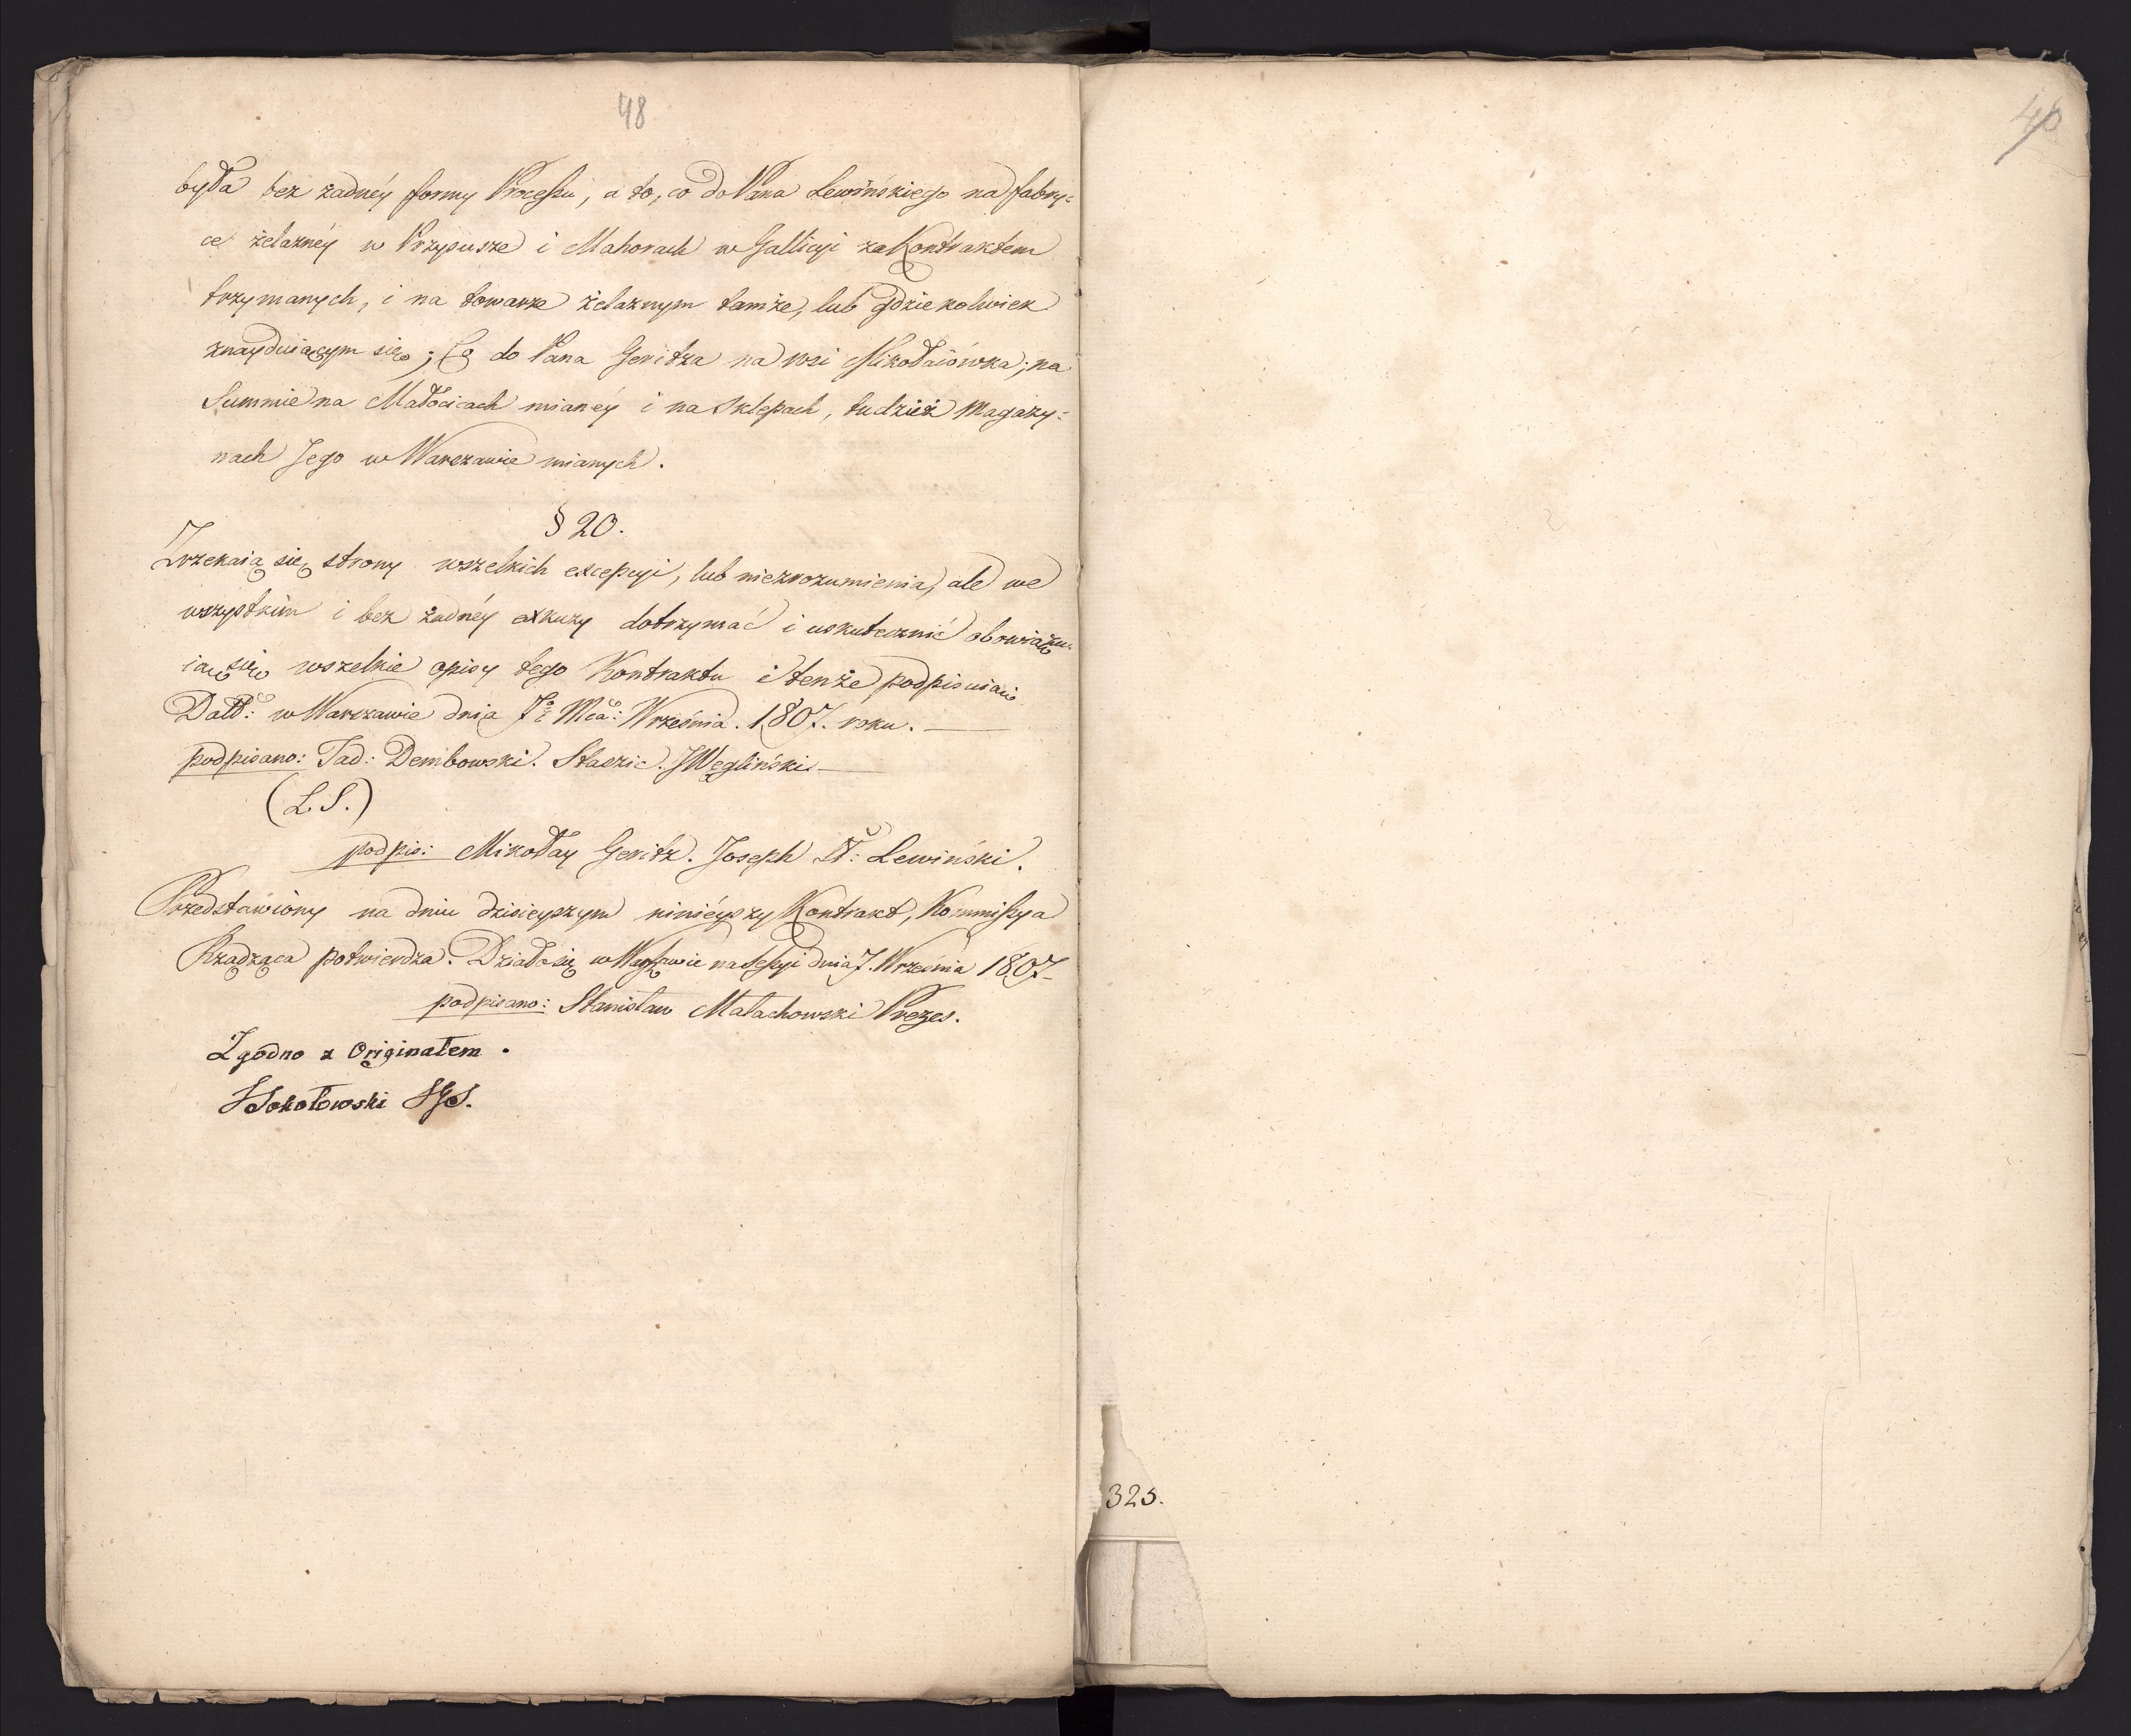 48
była bez żadnéy formy Processu, a to, co do Pana Lewińskiego na fabry=
ce żelaznéy w Przypusze i Mahorach w Gallicyi za Kontraktem
trzymanych, i na towarze żelaznym tamże, lub gdziekolwiek
znayduiącym się; Co do Pana Geritza na wsi Mikołaiówka; na
Summie na Małocicach mianéy i na Sklepach, tudzież Magazy=
nach Jego w Warszawie mianych.
§ 20.
Zrzekaią się strony wszelkich excepcyi, lub niezrozumienia, ale we
wszystkim i bez żadnéy exkuzy dotrzymać i uskutecznić obowiązu=
iąc się wszelkie opisy tego Kontraktu i tenże podpisuiąc
Datt: w Warszawie dnia 7º Mca: Września. 1807. roku.
podpisano: Tad: Dembowski. Staszic. J Węgliński
(L. S.)
podpis: Mikołay Geritz. Joseph Lewiński.
Przedstawiony na dniu dzisieyszym ninieyszy Kontrakt, Kommissya
Rządząca potwierdza. Działo się w Warszawie na Sessyi dnia 7. Września 1807
podpisano: Stanisław Małachowski Prezes.
Zgodno z Originałem.
Sokołowski
325.